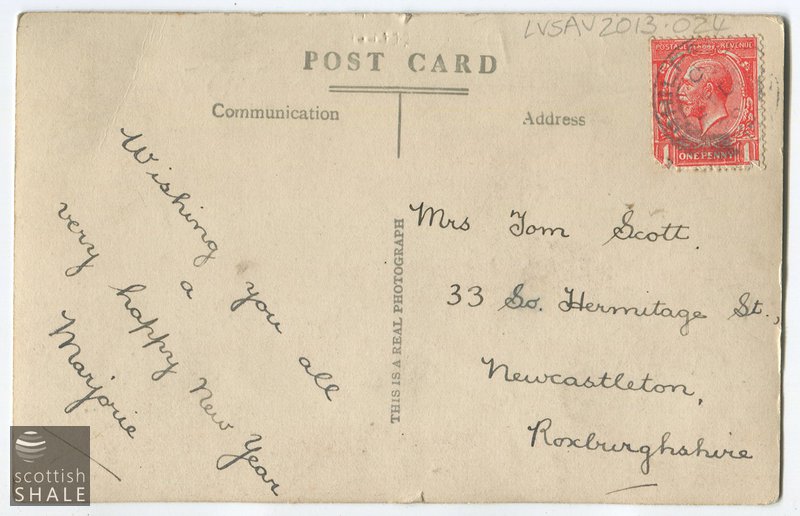 LVSAV2013.024
POST CARD
Communication
Address
POSTAGE REVENUE
ONE PENNY
1 1
Wishing you all
a
very happy New Year
Marjorie
THIS IS A REAL PHOTOGRAPH
Mrs Tom Scott.
33 So. Hermitage St.,
Newcastleton,
Roxburghshire
scottish
SHALE